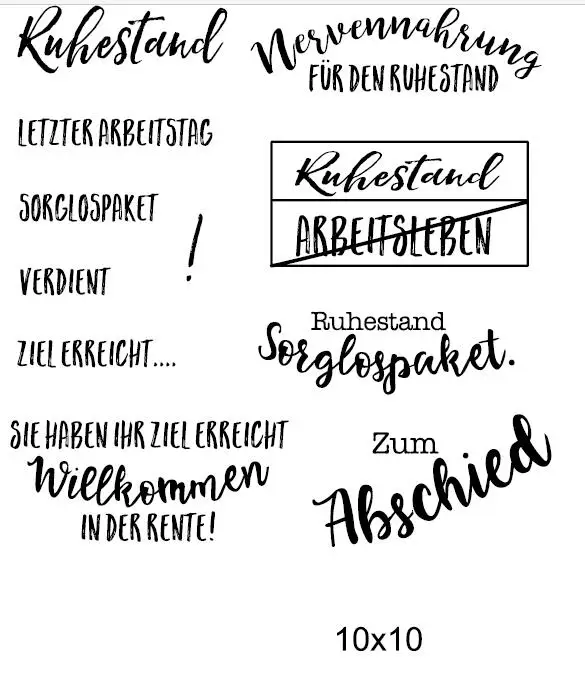 Ruhestand
LETZTER ARBEITSTAG
SORGLOSPAKET
!
VERDIENT
ZIEL ERREICHT....
SIE HABEN IHR ZIEL ERREICHT
Willkommen
IN DER RENTE!
Nervennahrung
FÜR DEN RUHESTAND
Ruhestand
ARBEITSLEBEN
Ruhestand
Sorglospaket.
Zum
Abschied
10x10